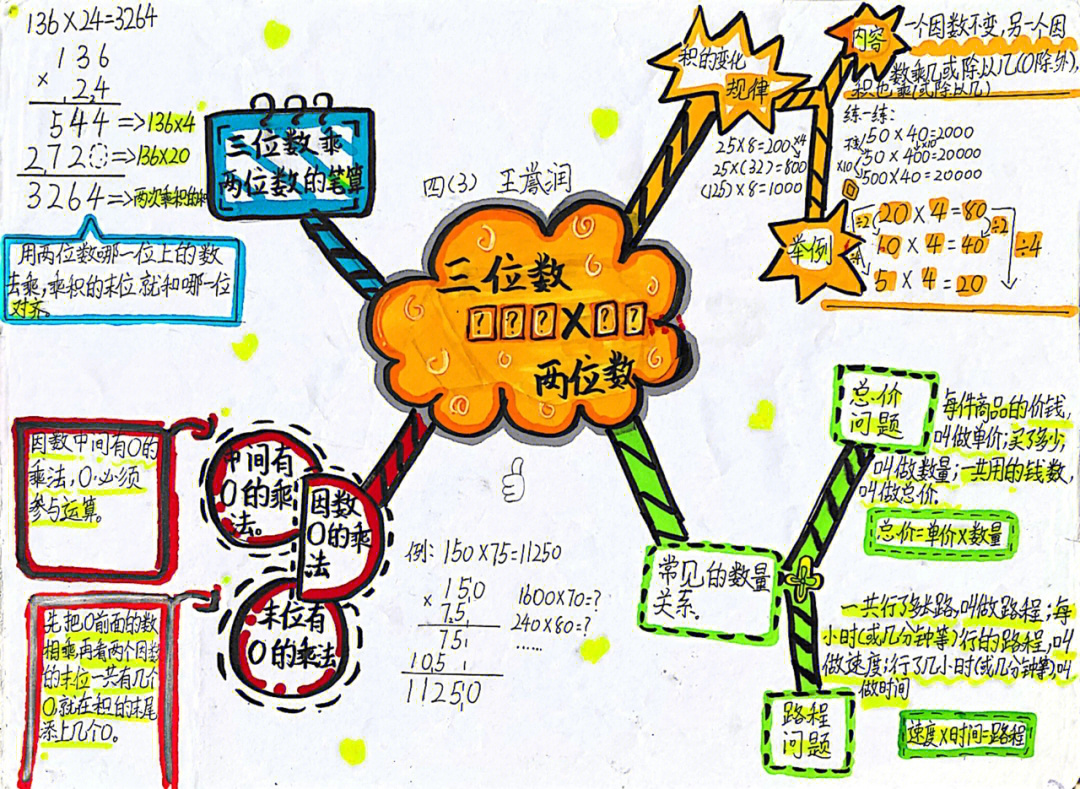 136×24=3264
136
×24
544=>136×4
2720=>136×20
3264=>两次乘积的和
用两位数哪一位上的数
去乘,乘积的末位就和哪一位
对齐。
三位数乘
两位数的笔算
四(3) 王
润
三位数
???×??
两位数
积的变化
规律
内容
一个因数不变,另一个因
数乘几或除以几(0除外),
积也乘(或除以几)
练一练:
50×40=2000
50×400=20000
500×40=20000
25×8=200
25×(32)=800
(125)×8=1000
举例
20×4=80
10×4=40
5×4=20
÷2
÷2
÷4
÷4
因数中间有0的
乘法,0必须
参与运算。
中间有
0的乘
法。
因数
0的乘
法
末位有
0的乘法
先把0前面的数
相乘,再看两个因数
的末位一共有几个
0,就在积的末尾
添上几个0。
例:150×75=11250
150
×75
75
105
11250
1600×70=?
240×80=?
……
常见的数量
关系。
总价
问题
每件商品的价钱,
叫做单价;买了多少,
叫做数量;一共用的钱数,
叫做总价.
总价=单价×数量
一共行了多长路,叫做路程;每
小时(或几分钟等)行的路程,叫
做速度;行了几小时(或几分钟等),叫
做时间
路程
问题
速度×时间=路程